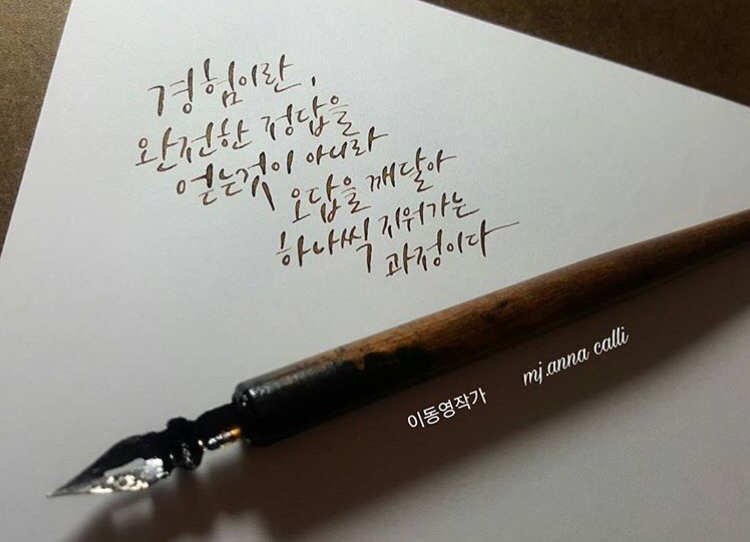 경험이란,
완전한 정답을
얻는것이 아니라
오답을 깨달아
하나씩 지워가는
과정이다
이동영작가
mj.anna calli